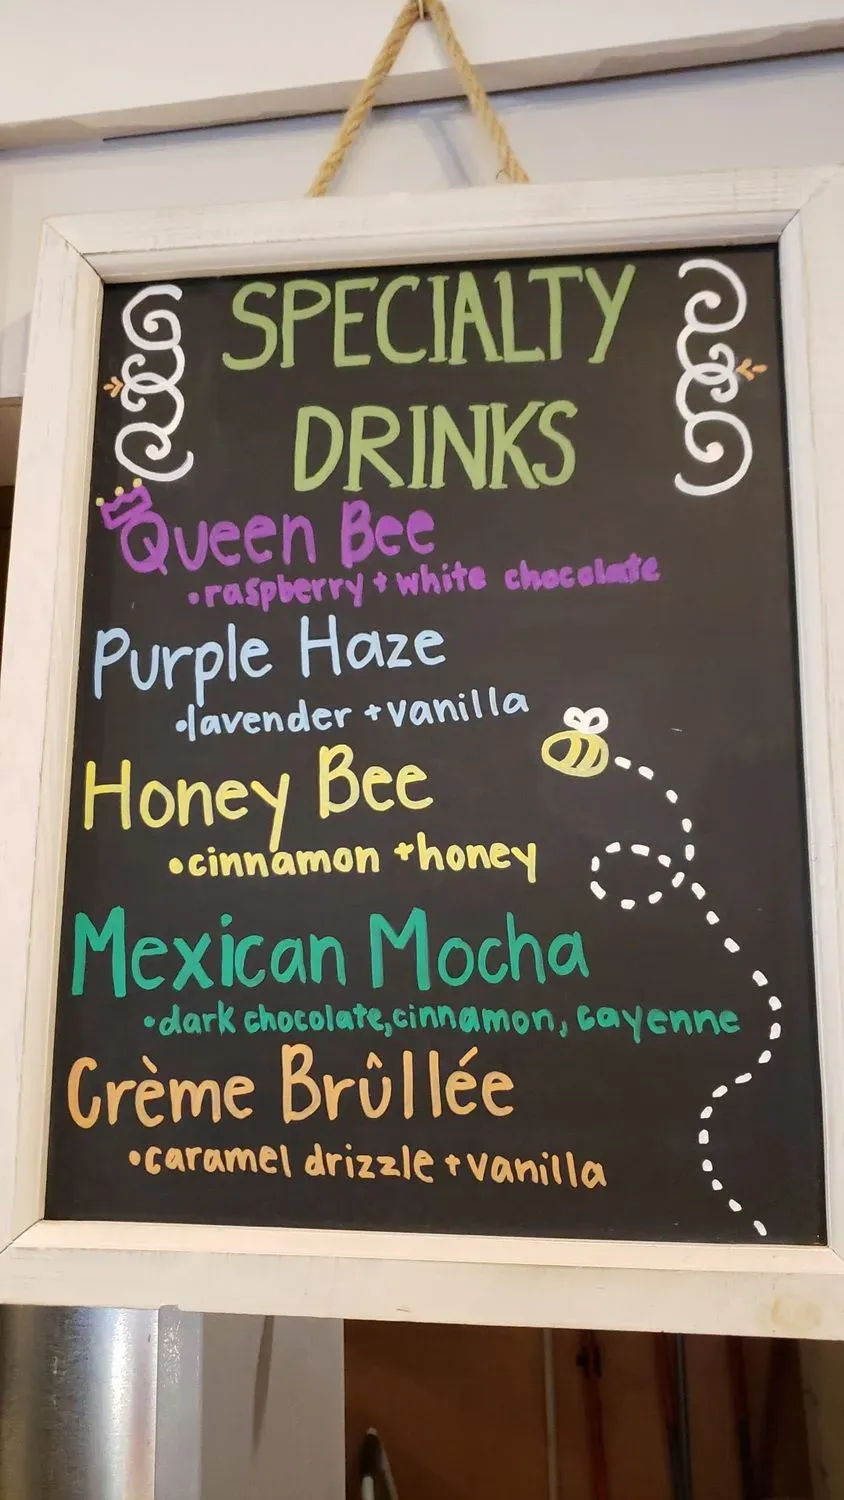 SPECIALTY
DRINKS
Queen Bee
•raspberry + white chocolate
Purple Haze
•lavender + vanilla
Honey Bee
•cinnamon + honey
Mexican Mocha
•dark chocolate, cinnamon, cayenne
Crème Brûllée
•caramel drizzle + vanilla